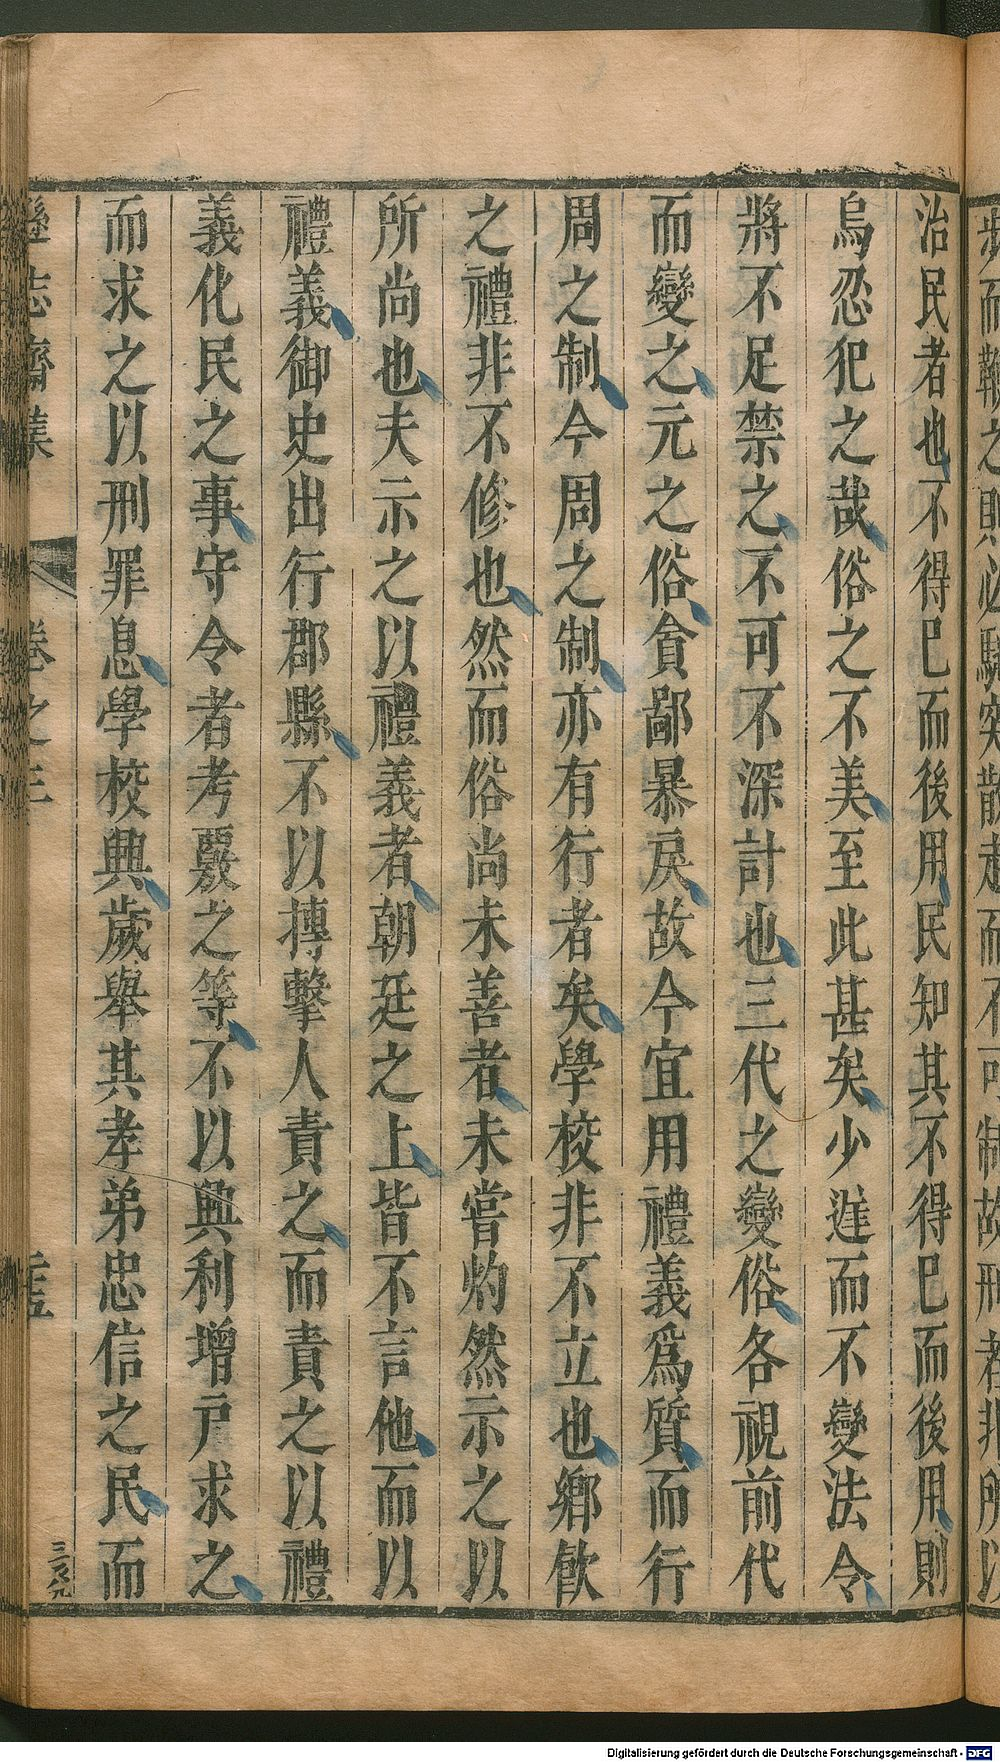 步而鞭之則必駭突散走而不可制故刑者非所以
治民者也不得已而後用民知其不得已而後用則
烏忍犯之哉俗之不美至此甚矣少遅而不變法令
將不足禁之不可不深計也三代之變俗各視前代
而變之元之俗貪鄙暴戾故今宜用禮義爲質而行
周之制今周之制亦有行者矣學校非不立也鄉飮
之禮非不修也然而俗尚未善者未嘗灼然示之以
所尚也夫示之以禮義者朝廷之上皆不言他而以
禮義御史出行郡縣不以摶擊人責之而責之以禮
義化民之事守令者考覈之等不以興利增戸求之
而求之以刑罪息學校興歲舉其孝弟忠信之民而
遜志齋集 卷之三
Digitalisierung gefördert durch die Deutsche Forschungsgemeinschaft - DFG